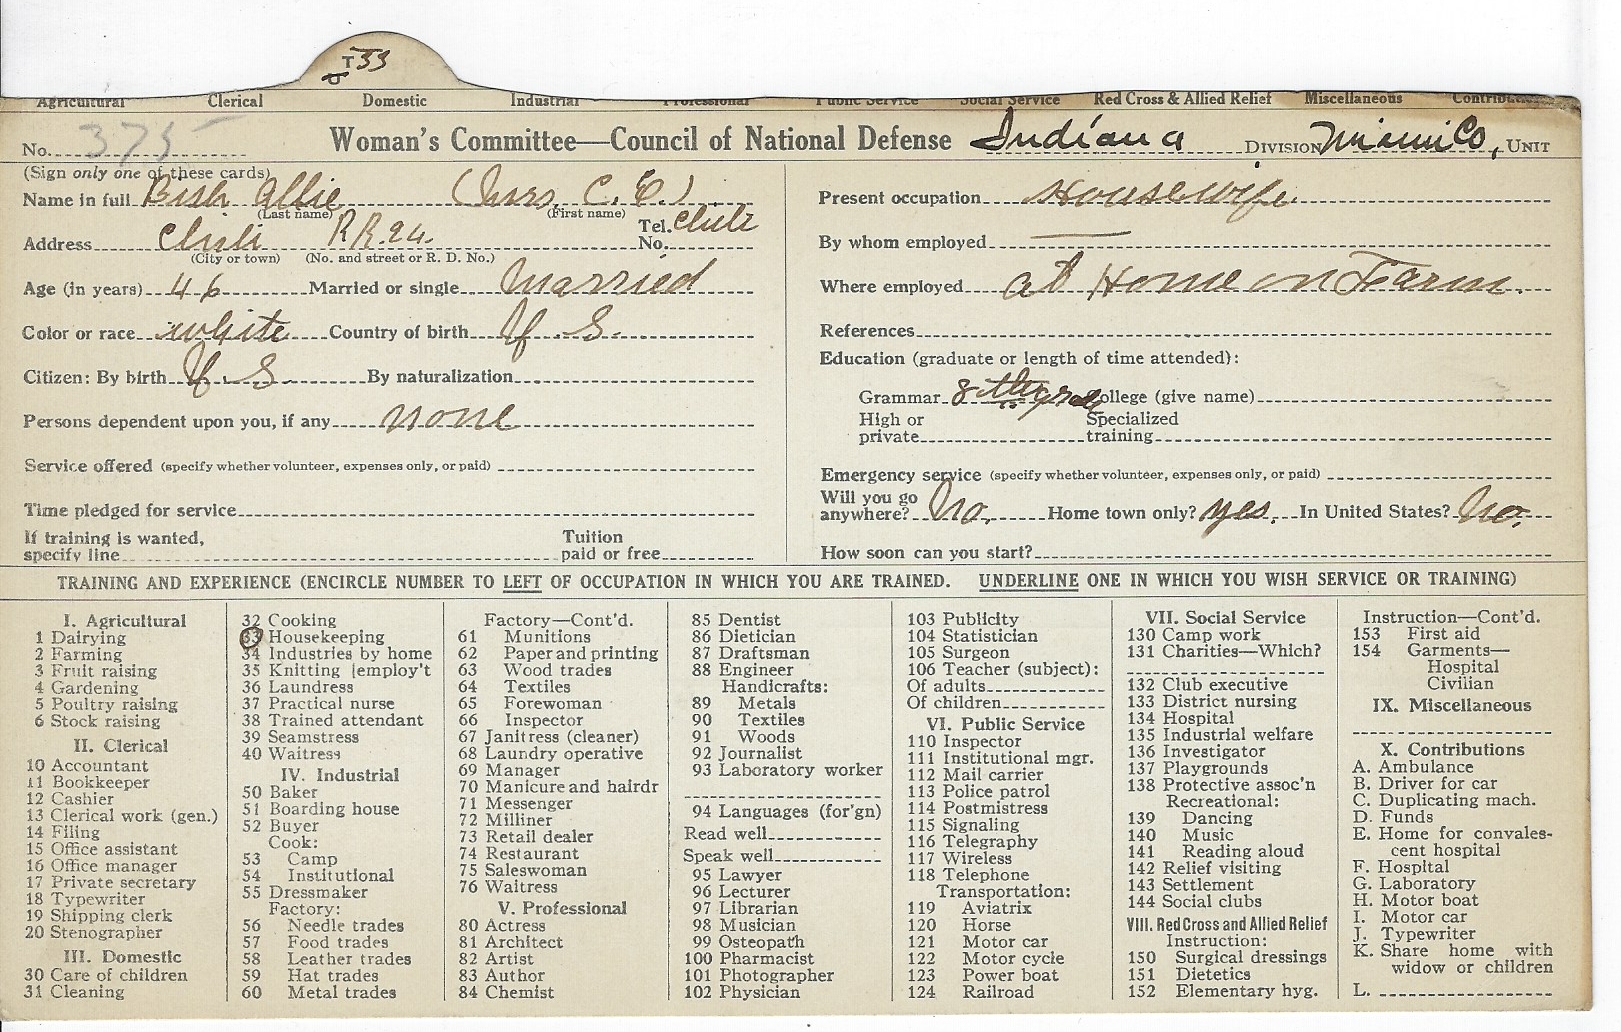 T 33
Agricultural Clerical Domestic Industrial Professional Public Service Social Service Red Cross & Allied Relief Miscellaneous Contributions
No. 375
Woman's Committee—Council of National Defense Indiana DIVISION Miami Co, UNIT
(Sign only one of these cards)
Name in full Bish Allie (Mrs. C. E.)
(Last name) (First name)
Address Chili R.R. 24. Tel. No. Chili
(City or town) (No. and street or R. D. No.)
Age (in years) 46 Married or single Married
Color or race white Country of birth U. S.
Citizen: By birth U. S. By naturalization
Persons dependent upon you, if any none
Service offered (specify whether volunteer, expenses only, or paid)
Time pledged for service
If training is wanted, specify line
Tuition paid or free
Present occupation Housewife
By whom employed —
Where employed at Home on Farm.
References
Education (graduate or length of time attended):
Grammar 8th grade College (give name)
High or private Specialized training
Emergency service (specify whether volunteer, expenses only, or paid)
Will you go anywhere? No. Home town only? yes. In United States? No.
How soon can you start?
TRAINING AND EXPERIENCE (ENCIRCLE NUMBER TO LEFT OF OCCUPATION IN WHICH YOU ARE TRAINED. UNDERLINE ONE IN WHICH YOU WISH SERVICE OR TRAINING)
I. Agricultural
1 Dairying
2 Farming
3 Fruit raising
4 Gardening
5 Poultry raising
6 Stock raising
II. Clerical
10 Accountant
11 Bookkeeper
12 Cashier
13 Clerical work (gen.)
14 Filing
15 Office assistant
16 Office manager
17 Private secretary
18 Typewriter
19 Shipping clerk
20 Stenographer
III. Domestic
30 Care of children
31 Cleaning
32 Cooking
33 Housekeeping
34 Industries by home
35 Knitting [employ't
36 Laundress
37 Practical nurse
38 Trained attendant
39 Seamstress
40 Waitress
IV. Industrial
50 Baker
51 Boarding house
52 Buyer
Cook:
53 Camp
54 Institutional
55 Dressmaker
Factory:
56 Needle trades
57 Food trades
58 Leather trades
59 Hat trades
60 Metal trades
Factory—Cont'd.
61 Munitions
62 Paper and printing
63 Wood trades
64 Textiles
65 Forewoman
66 Inspector
67 Janitress (cleaner)
68 Laundry operative
69 Manager
70 Manicure and hairdr
71 Messenger
72 Milliner
73 Retail dealer
74 Restaurant
75 Saleswoman
76 Waitress
V. Professional
80 Actress
81 Architect
82 Artist
83 Author
84 Chemist
85 Dentist
86 Dietician
87 Draftsman
88 Engineer
Handicrafts:
89 Metals
90 Textiles
91 Woods
92 Journalist
93 Laboratory worker
94 Languages (for'gn)
Read well
Speak well
95 Lawyer
96 Lecturer
97 Librarian
98 Musician
99 Osteopath
100 Pharmacist
101 Photographer
102 Physician
103 Publicity
104 Statistician
105 Surgeon
106 Teacher (subject):
Of adults
Of children
VI. Public Service
110 Inspector
111 Institutional mgr.
112 Mail carrier
113 Police patrol
114 Postmistress
115 Signaling
116 Telegraphy
117 Wireless
118 Telephone
Transportation:
119 Aviatrix
120 Horse
121 Motor car
122 Motor cycle
123 Power boat
124 Railroad
VII. Social Service
130 Camp work
131 Charities—Which?
132 Club executive
133 District nursing
134 Hospital
135 Industrial welfare
136 Investigator
137 Playgrounds
138 Protective assoc'n
Recreational:
139 Dancing
140 Music
141 Reading aloud
142 Relief visiting
143 Settlement
144 Social clubs
VIII. Red Cross and Allied Relief
Instruction:
150 Surgical dressings
151 Dietetics
152 Elementary hyg.
Instruction—Cont'd.
153 First aid
154 Garments—
Hospital
Civilian
IX. Miscellaneous
X. Contributions
A. Ambulance
B. Driver for car
C. Duplicating mach.
D. Funds
E. Home for convales-
cent hospital
F. Hospital
G. Laboratory
H. Motor boat
I. Motor car
J. Typewriter
K. Share home with
widow or children
L.